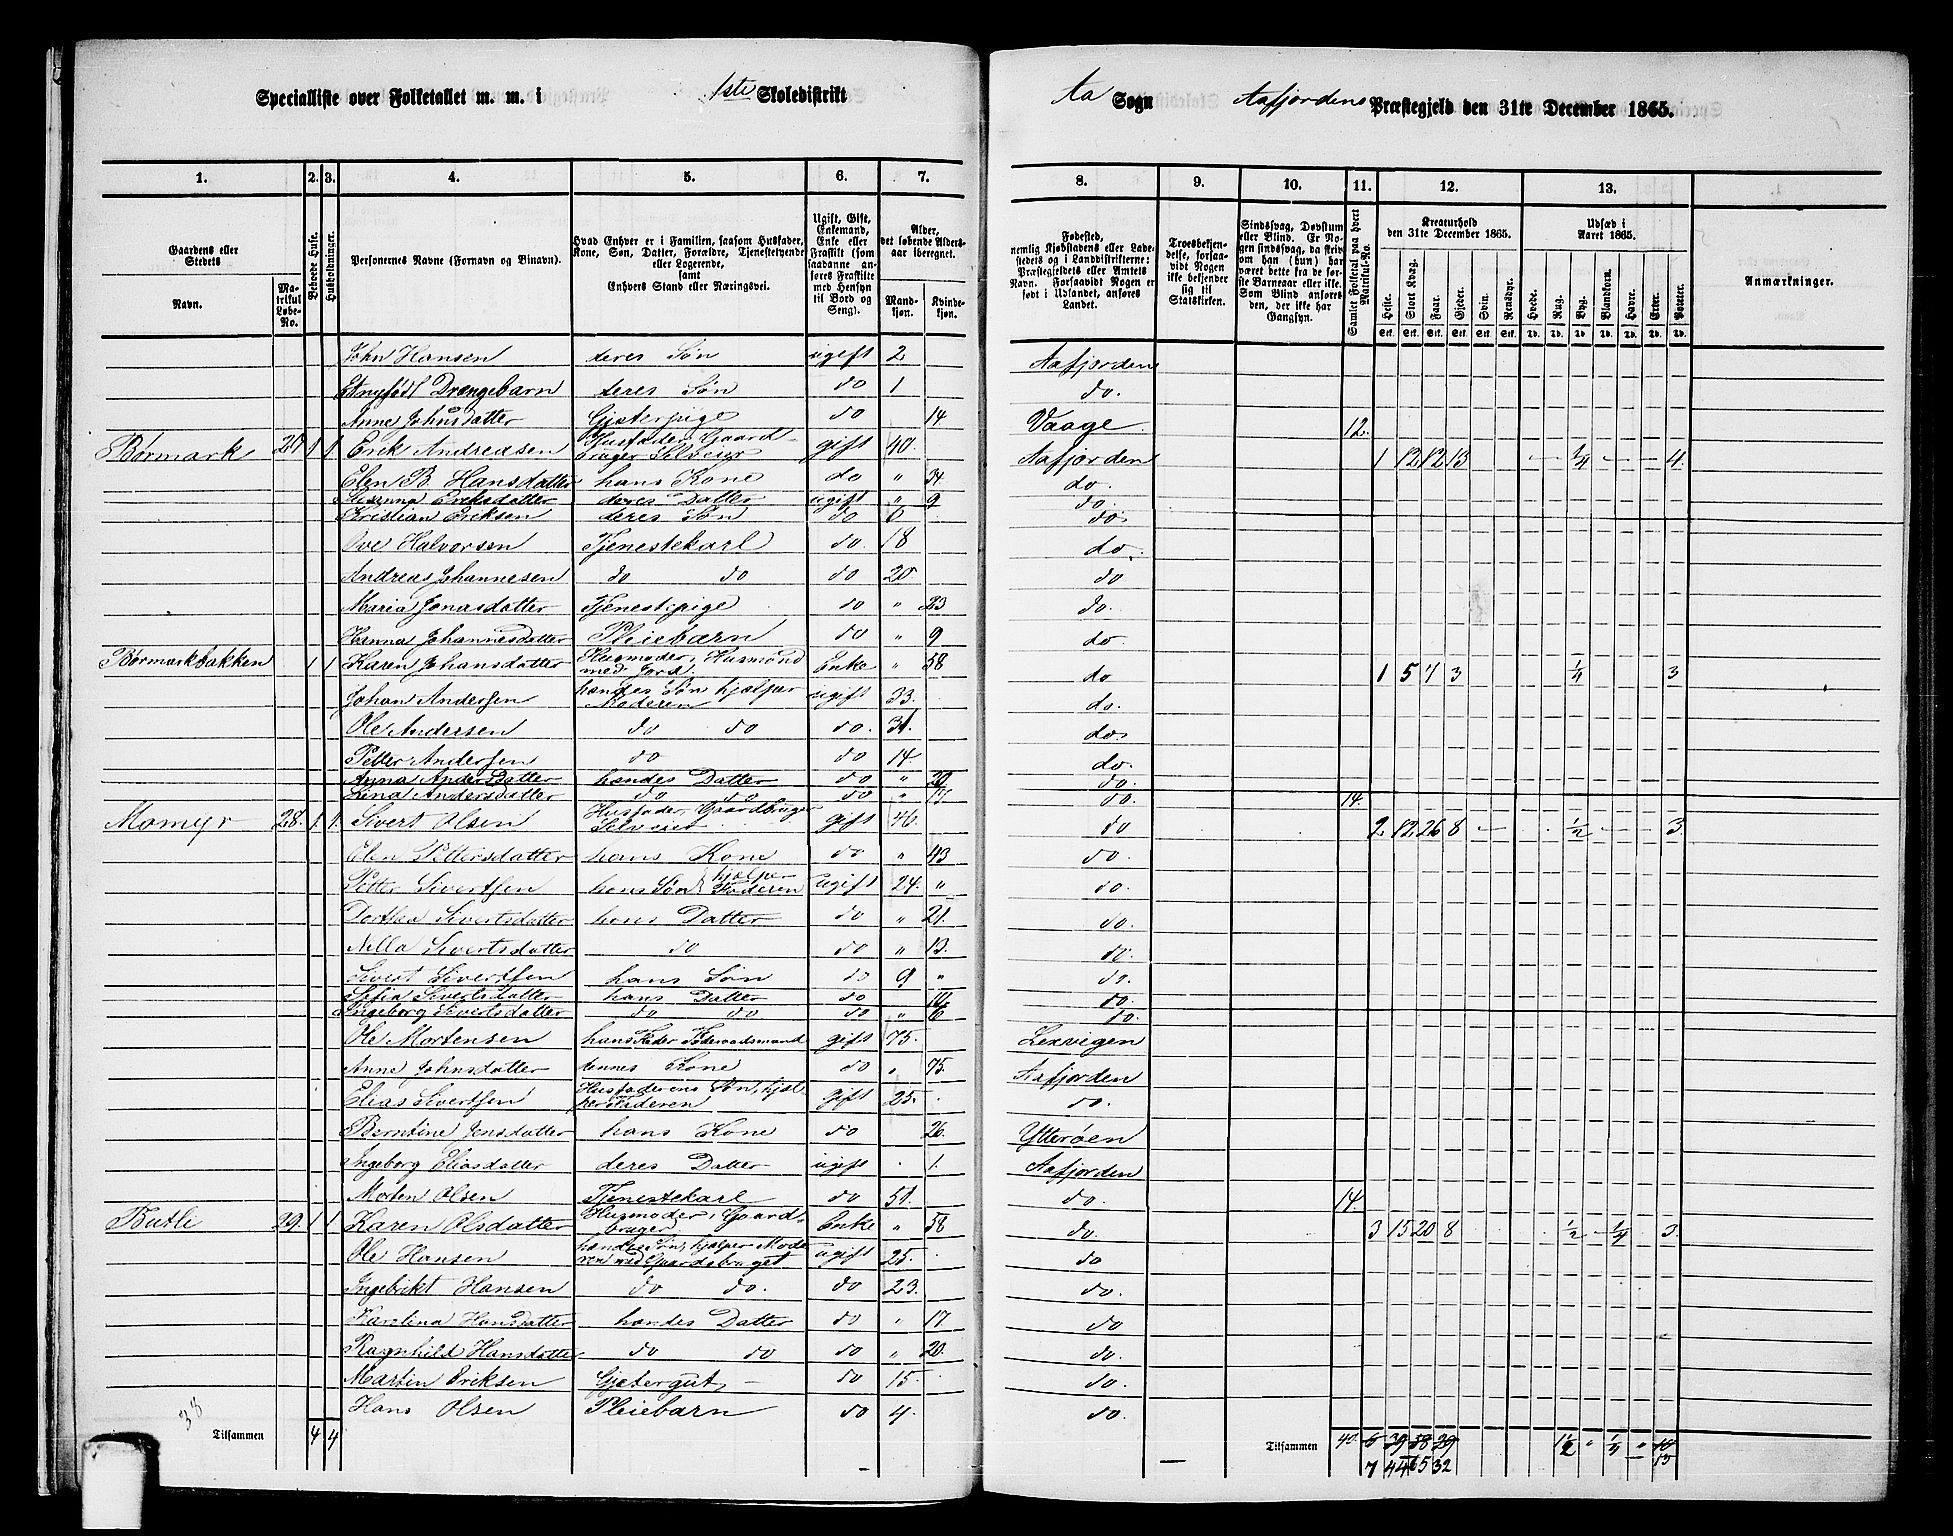 Specialliste over Folketallet m. m. i 1ste Skoledistrikt Aa Sogn Aafjordens Præstegjeld den 31te December 1865.
1. 2. 3. 4. 5. 6. 7. 8. 9. 10. 11. 12. 13.
Gaardens eller Stedets Navn. Matrikul Løbe-No. Beboede Huse. Husholdninger. Personernes Navne (Fornavn og Binavn).
Hvad Enhver er i Familien, saasom Husfader, Kone, Søn, Datter, Forældre, Tjenestetyende eller Logerende, samt Enhvers Stand eller Næringsvei.
Ugift, Gift, Enkemand, Enke eller Fraskilt (som saadanne anføres Fraskilte med Hensyn til Bord og Seng).
Alder, det løbende Alders-aar iberegnet. Mandkjøn. Kvindekjøn.
Fødested, nemlig Kjøbstadens eller Ladestedets og i Landdistrikterne: Præstegjeldets eller Amtets Navn. Forsaavidt Nogen er født i Udlandet, anføres Landet.
Troesbekjendelse, forsaavidt Nogen ikke bekjender sig til Statskirken.
Sindssvag, Døvstum eller Blind. Er Nogen sindssvag, da skrives om han (hun) har været dette fra de første Barneaar eller ikke. Som Blind anføres den, der ikke har Gangsyn.
Samlet Folketal paa hvert Matrikul-No.
Kreaturhold den 31te December 1865. Heste. Stort Kvæg. Faar. Gjeder. Svin. Rensdyr.
Udsæd i Aaret 1865. Hvede. Rug. Byg. Blandkorn. Havre. Erter. Poteter.
Anmærkninger.
John Hansen deres Søn ugift 2 Aafjorden
Et nyfødt Drengebarn deres Søn do 1 do.
Anne Johnsdatter Gjeterpige do 14 Vaage 12.
Børmark 27 1 1 Erik Andreasen Husfader, Gaardbruger Selveier gift 40. Aafjorden 1 12 12 13 1/4 4.
Elen B. Hansdatter hans Kone do " 34 do.
Eriksdatter deres Datter ugift " 9 do.
Kristian Eriksen deres Søn do 6 do.
Ove Halvorsen Tjenestekarl do. 18 do.
Andreas Johannesen do do do 20. do
Maria Jonasdatter Tjenestepige do " 23 do.
Hanna Johannesdatter Pleiebarn do " 9 do.
Børmarkbakken 1 1 Karen Johansdatter Husmoder, Husmand med Jord. Enke " 58 do 1 5 7 3 1/4 3
Johan Andersen hendes Søn hjælper Moderen ugift 33. do.
Ole Andersen do do do. 31. do.
Petter Andersen do do 14 do.
Anna Andersdatter hendes Datter do " 29 do.
Lina Andersdatter do do do " do. 14.
Momyr 28. 1. 1. Sivert Olsen Husfader, Gaardbruger Selveier gift 46. do 2 12 26 8 1/2 3.
Elen Pettersdatter hans Kone do " 43 do.
Petter Sivertsen hans Søn hjælper Faderen ugift 24. " do.
Dorthea Sivertsdatter hans Datter do " 21. do.
Nella Sivertsdatter do do " 13. do.
Sivert Sivertsen hans Søn do 9 " do.
Sofia Sivertsdatter hans Datter do do.
Ingeborg Sivertsdatter do do do " 6 do.
Ole Mortensen hans Fader Føderaadsmand gift 75. Lexvigen
Anne Johnsdatter dennes Kone do " 75. Aafjorden
Elias Sivertsen Husfaderens Søn, hjælper Faderen gift 25. do.
Berntine Jensdatter hans Kone do 26. Ytterøen
Ingeborg Eliasdatter deres Datter ugift 1. Aafjorden
Morten Olsen Tjenestekarl do 51. do. 14.
Butli 29. 1 1 Karen Olsdatter Husmoder, Gaardbruger Enke " 58 do. 3 15 20 8 1/2 1/4 3.
Ole Hansen hendes Søn, hjælper Moderen med Gaardsbruget ugift 25. do
Ingebrikt Hansen do do. do 23. do.
Karolina Hansdatter hendes Datter do " 17 do
Ragnhild Hansdatter do do do " 20. do.
Martin Eriksen Gjetergut, do 15. do.
Hans Olsen Pleiebarn do 4. do.
38
Tilsammen 4 4 Tilsammen 40. 6 39 58 29 1 1/2 " 1/4 " 10
7 44 65 32 13